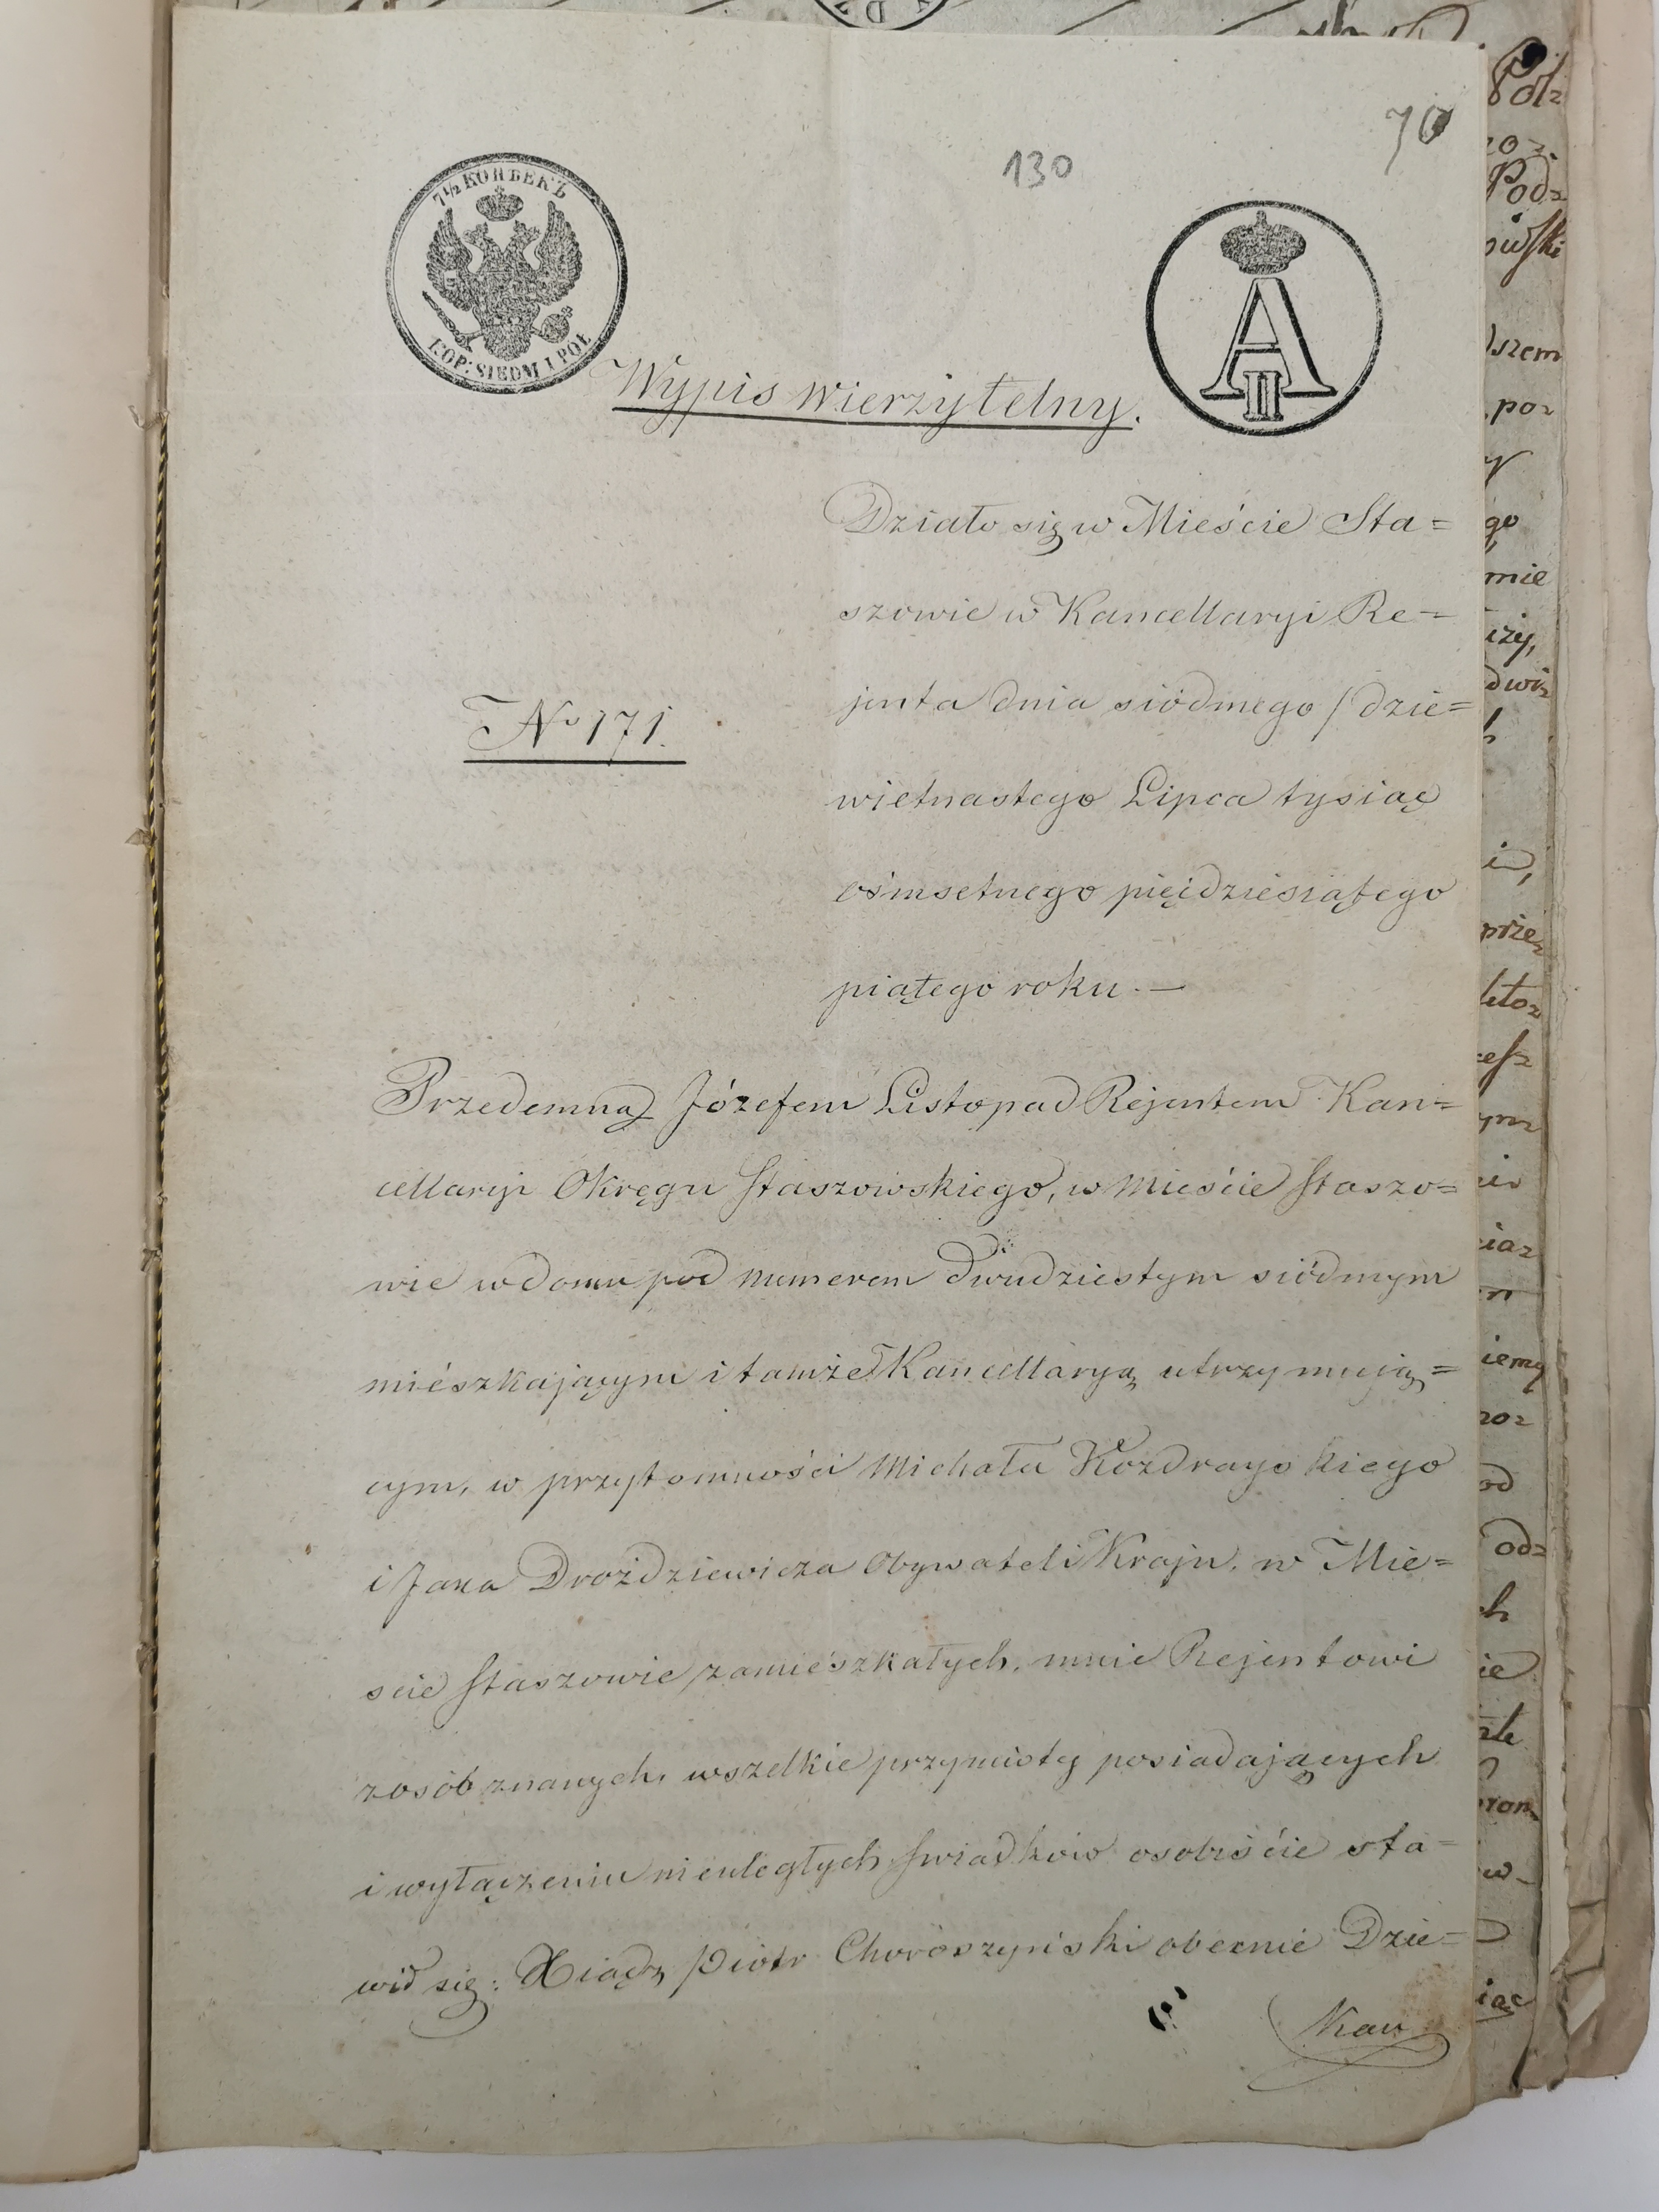 70
130
7½ КОПѢЕКЪ
KOP: SIEDM I PÓŁ
A
II
Wypis Wierzytelny.
Działo się w Mieście Sta=
szowie w Kancellaryi Re=
N° 171.
jenta dnia siódmego / dzie=
wietnastego Lipca tysiąc
ośmsetnego pięidziesiątego
piątego roku. —
Przedemną Józefem Listopad Rejentem Kan=
cellaryi Okręgu Staszowskiego, w mieście Staszo=
wie w domu pod numerem dwudziestym siódmym
miészkającym i tamże Kancellaryą utrzymują=
cym, w przytomności Michała Kozdrayskiego
i Jana Drożdziewicza Obywateli Kraju, w Mie=
scie Staszowie zamiészkałych, mnie Rejentowi
z osób znanych, wszelkie przymioty posiadających
i wyłączeniu nieuległych swiadków osobiście sta=
wił się: Xiądz Piotr Choroszyński obecnie Dzie=
Kan